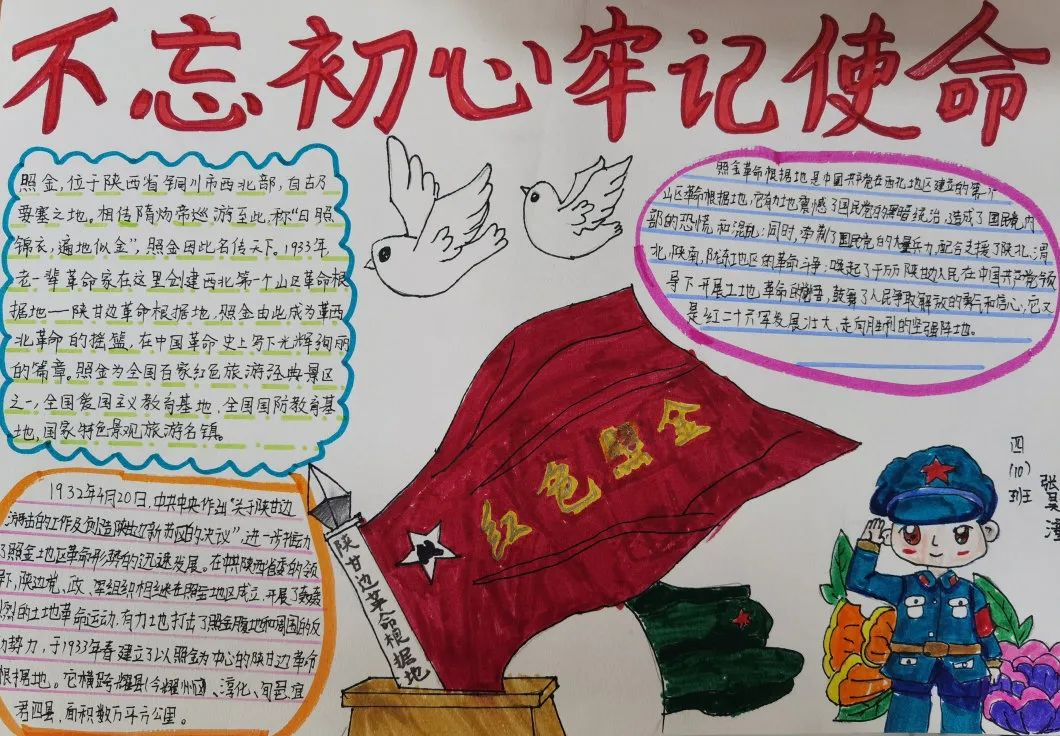 不忘初心牢记使命
照金,位于陕西省铜川市西北部,自古乃
要塞之地。相传隋炀帝巡游至此,称“日照
锦衣,遍地似金”,照金因此名传天下。1933年
老一辈革命家在这里创建西北第一个山区革命根
据地—陕甘边革命根据地,照金由此成为革西
北革命的摇篮,在中国革命史上写下光辉绚丽
的篇章。照金为全国百家红色旅游经典景区
之一,全国爱国主义教育基地,全国国防教育基
地,国家特色景观旅游名镇。
照金革命根据地是中国共产党在西北地区建立的第一个
山区革命根据地,它有力地震撼了国民党的黑暗统治,造成了国民党内
部的恐慌和混乱;同时,牵制了国民党的大量兵力,配合支援了陕北,渭
北,陕南,陇东地区的革命斗争,唤起了千万陕甘人民在中国共产党领
导下开展土地革命的觉悟,鼓舞了人民争取解放的勇气和信心,它又
是红二十六军发展壮大、走向胜利的坚强阵地。
1932年4月20日,中共中央作出“关于陕甘边
游击的工作及创造陕甘边新苏区的决议”,进一步推动
了照金地区革命形势的迅速发展。在中共陕西省委的领
导下,陕边党、政、军组织相继在照金地区成立,开展了轰轰
烈烈的土地革命运动,有力土地打击了照金腹地和周围的反
动势力,于1933年春建立了以照金为中心的陕甘边革命
根据地。它横跨耀县(今耀州区)、淳化、旬邑、宜
君四县,面积数万平方公里。
红色照金
陕甘边革命根据地
四(10)班
张昊